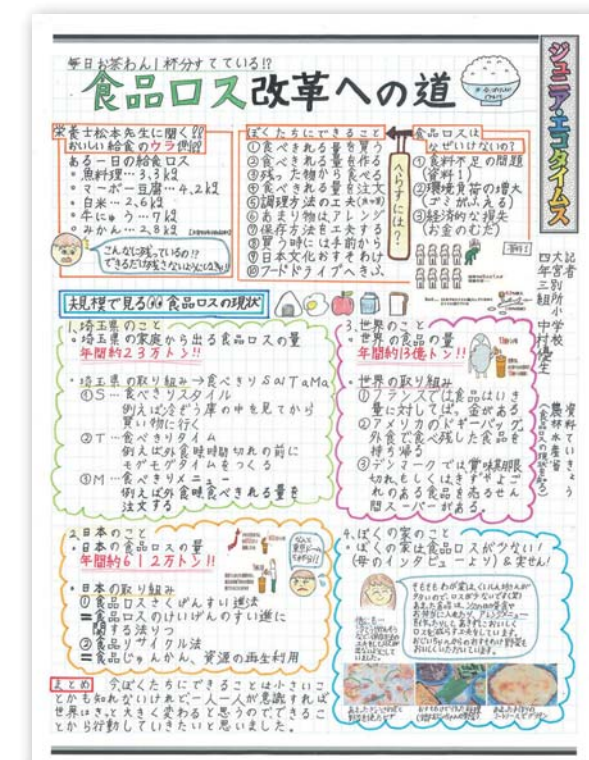 ジュニア・エコタイムス
毎日お茶わん1杯分すてている!?
食品ロス改革への道
記者
大宮別所小学校
四年三組 中村
資料ていきょう
農林水産省
栄養士松本先生に聞く!!
おいしい給食のウラ側!!!
ある一日の給食ロス
・魚料理…3.3kg
・マーボー豆腐…4.2kg
・白米…2.6kg
・牛にゅう…7kg
・みかん…2.8kg
こんなに残っているの!?
できるだけ残さないようにしなきゃ!!
ぼくたちにできること
①食べきれる量を買う
②食べきれる量を作る
③残った物から食べる
④食べきれる量を注文
⑤調理方法の工夫
⑥あまり物はアレンジ
⑦保存方法を工夫する
⑧買う時には手前から
⑨日本文化おすそわけ
⑩フードドライブへきふ
へらすには?
食品ロスは
なぜいけないの?
①食料不足の問題
(資料1)
②環境負荷の増大
(ゴミがふえる)
③経済的な損失
(お金のむだ)
規模で見る 食品ロスの現状
1.埼玉県のこと
・埼玉県の家庭から出る食品ロスの量
年間約23万トン!!
・埼玉県の取り組み→食べきりSaiTaMa
①S…食べきりスタイル
例えば冷ぞう庫の中を見てから
買い物に行く
②T…食べきりタイム
例えば外食時間切れの前に
モグモグタイムをつくる
③M…食べきりメニュー
例えば外食時食べきれる量を
注文する
2.日本のこと
・日本の食品ロスの量
年間約612万トン!!
・日本の取り組み
①食品ロスさくげんすい進法
=食品ロスのけいげんのすい進に
関する法りつ
②食品リサイクル法
=食品じゅんかん、資源の再生利用
3.世界のこと
・世界の食品の量
年間約13億トン!!
・世界の取り組み
①フランスでは食品はいき
量に対してばっ金がある
②アメリカのドギーバッグ
外食で食べ残した食品を
持ち帰る
③デンマークでは賞味期限
切れもしくはきずやよご
れのある食品を売るせん
門スーパーがある。
4.ぼくの家のこと
・ぼくの家は食品ロスが少ない!
(母のインタビューより)&実せん!
まとめ 今ぼくたちにできることは小さいこ
とかも知れないけれど、一人一人が意識すれば
世界はきっと大きく変わると思うので、できるこ
とから行動していきたいと思いました。